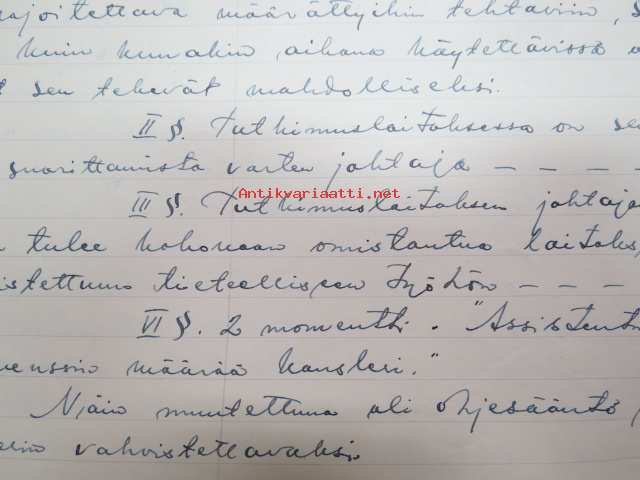 rajoitettava määrättyihin tehtäviin, s
kuin kunakin aikana käytettävissä o
t sen tekevät mahdolliseksi.
II §. Tutkimuslaitoksessa on se
suorittamista varten johtaja – – – –
Antikvariaatti.net
III §. Tutkimuslaitoksen johtaja
n tulee kokonaan omistautua laitoks
istettuun tieteelliseen työhön – – –
VI §. 2 momentti. "Assistenti
määrää kansleri."
Näin muutettuna oli ohjesääntö
vahvistettavaksi.